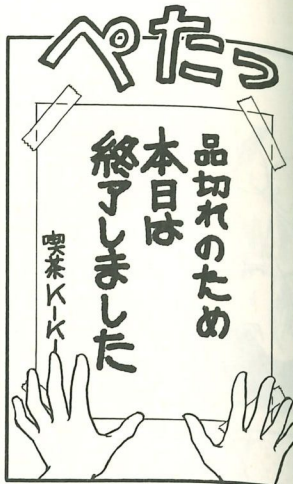 ぺたっ
品切れのため
本日は
終了しました
喫茶KIKI